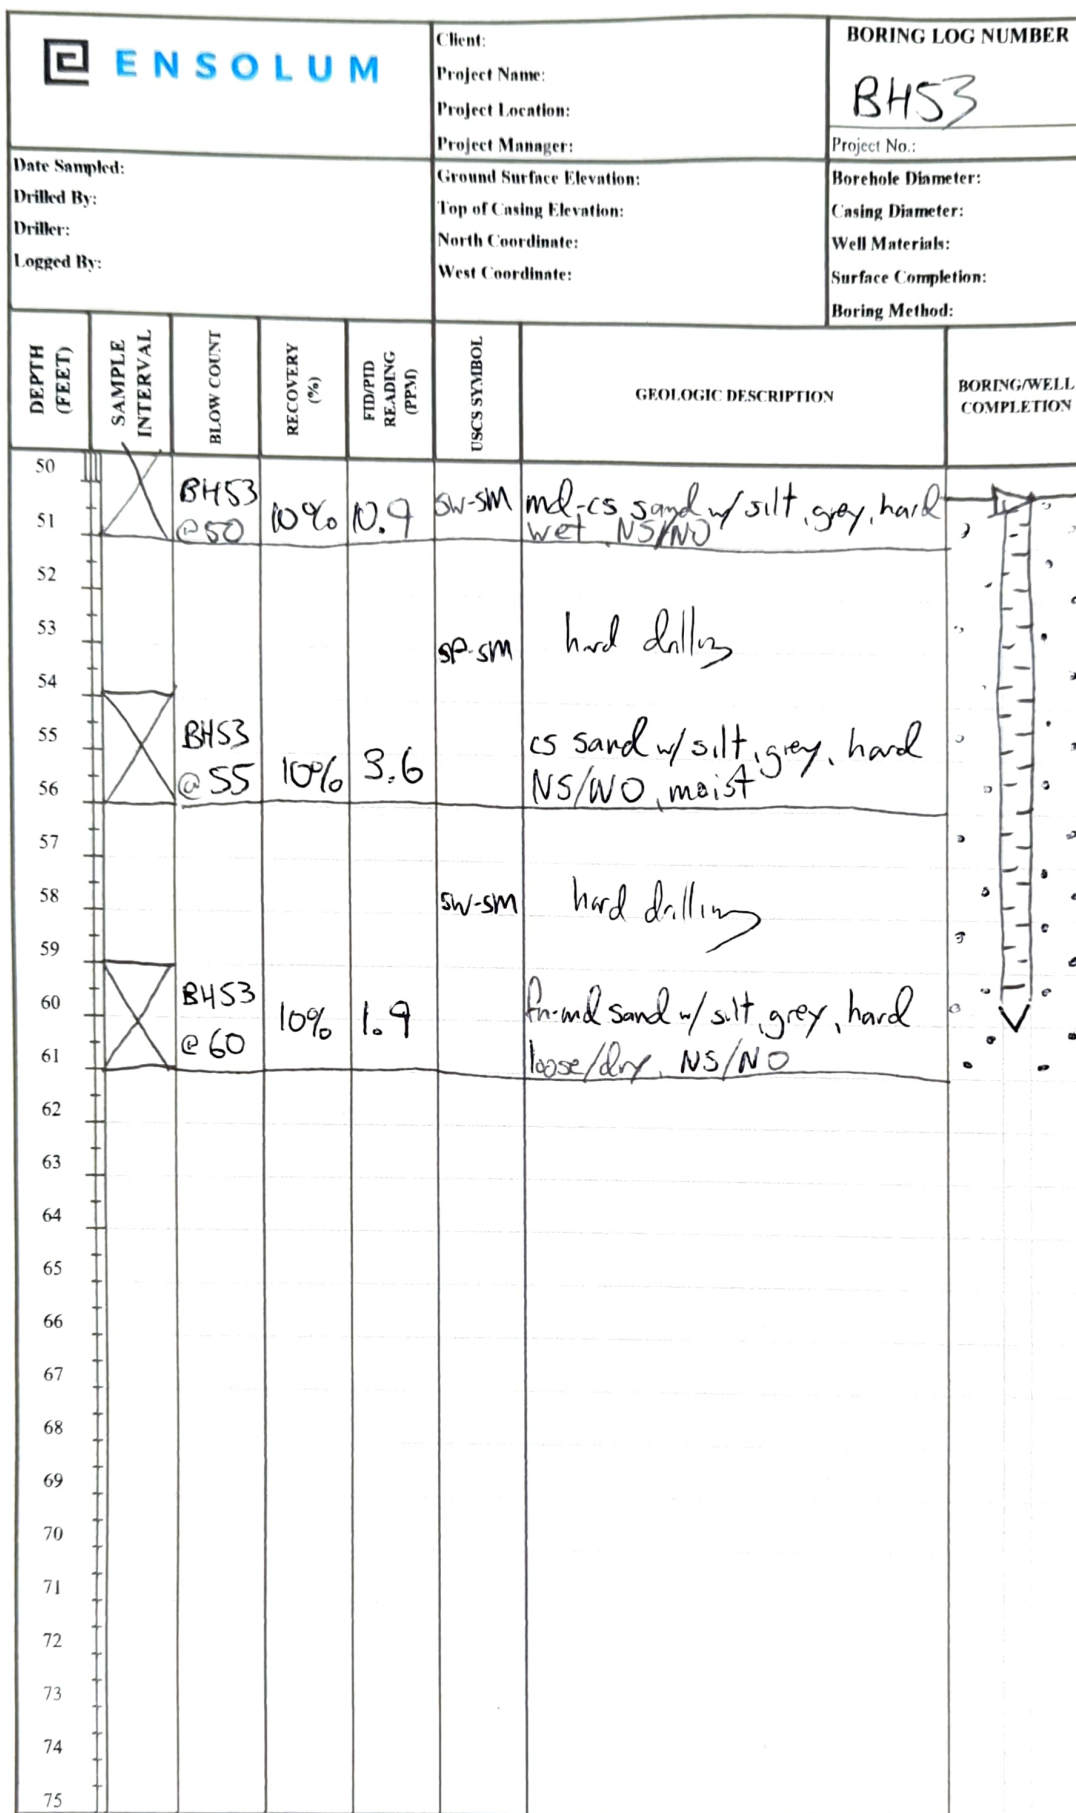 ENSOLUM
Client:
Project Name:
Project Location:
Project Manager:
BORING LOG NUMBER
BH53
Project No.:
Date Sampled:
Drilled By:
Driller:
Logged By:
Ground Surface Elevation:
Top of Casing Elevation:
North Coordinate:
West Coordinate:
Borehole Diameter:
Casing Diameter:
Well Materials:
Surface Completion:
Boring Method:
DEPTH
(FEET)
SAMPLE
INTERVAL
BLOW COUNT
RECOVERY
(%)
FID/PID
READING
(PPM)
USCS SYMBOL
GEOLOGIC DESCRIPTION
BORING/WELL
COMPLETION
50
BH53
@50
10%
10.9
SW-SM
md-cs sand w/ silt, grey, hard
wet, NS/NO
51
52
53
SP-SM
hard drilling
54
55
BH53
@55
10%
3.6
cs sand w/ silt, grey, hard
NS/NO, moist
56
57
58
SW-SM
hard drilling
59
60
BH53
@60
10%
1.9
fn-md sand w/ silt, grey, hard
loose/dry, NS/NO
61
62
63
64
65
66
67
68
69
70
71
72
73
74
75